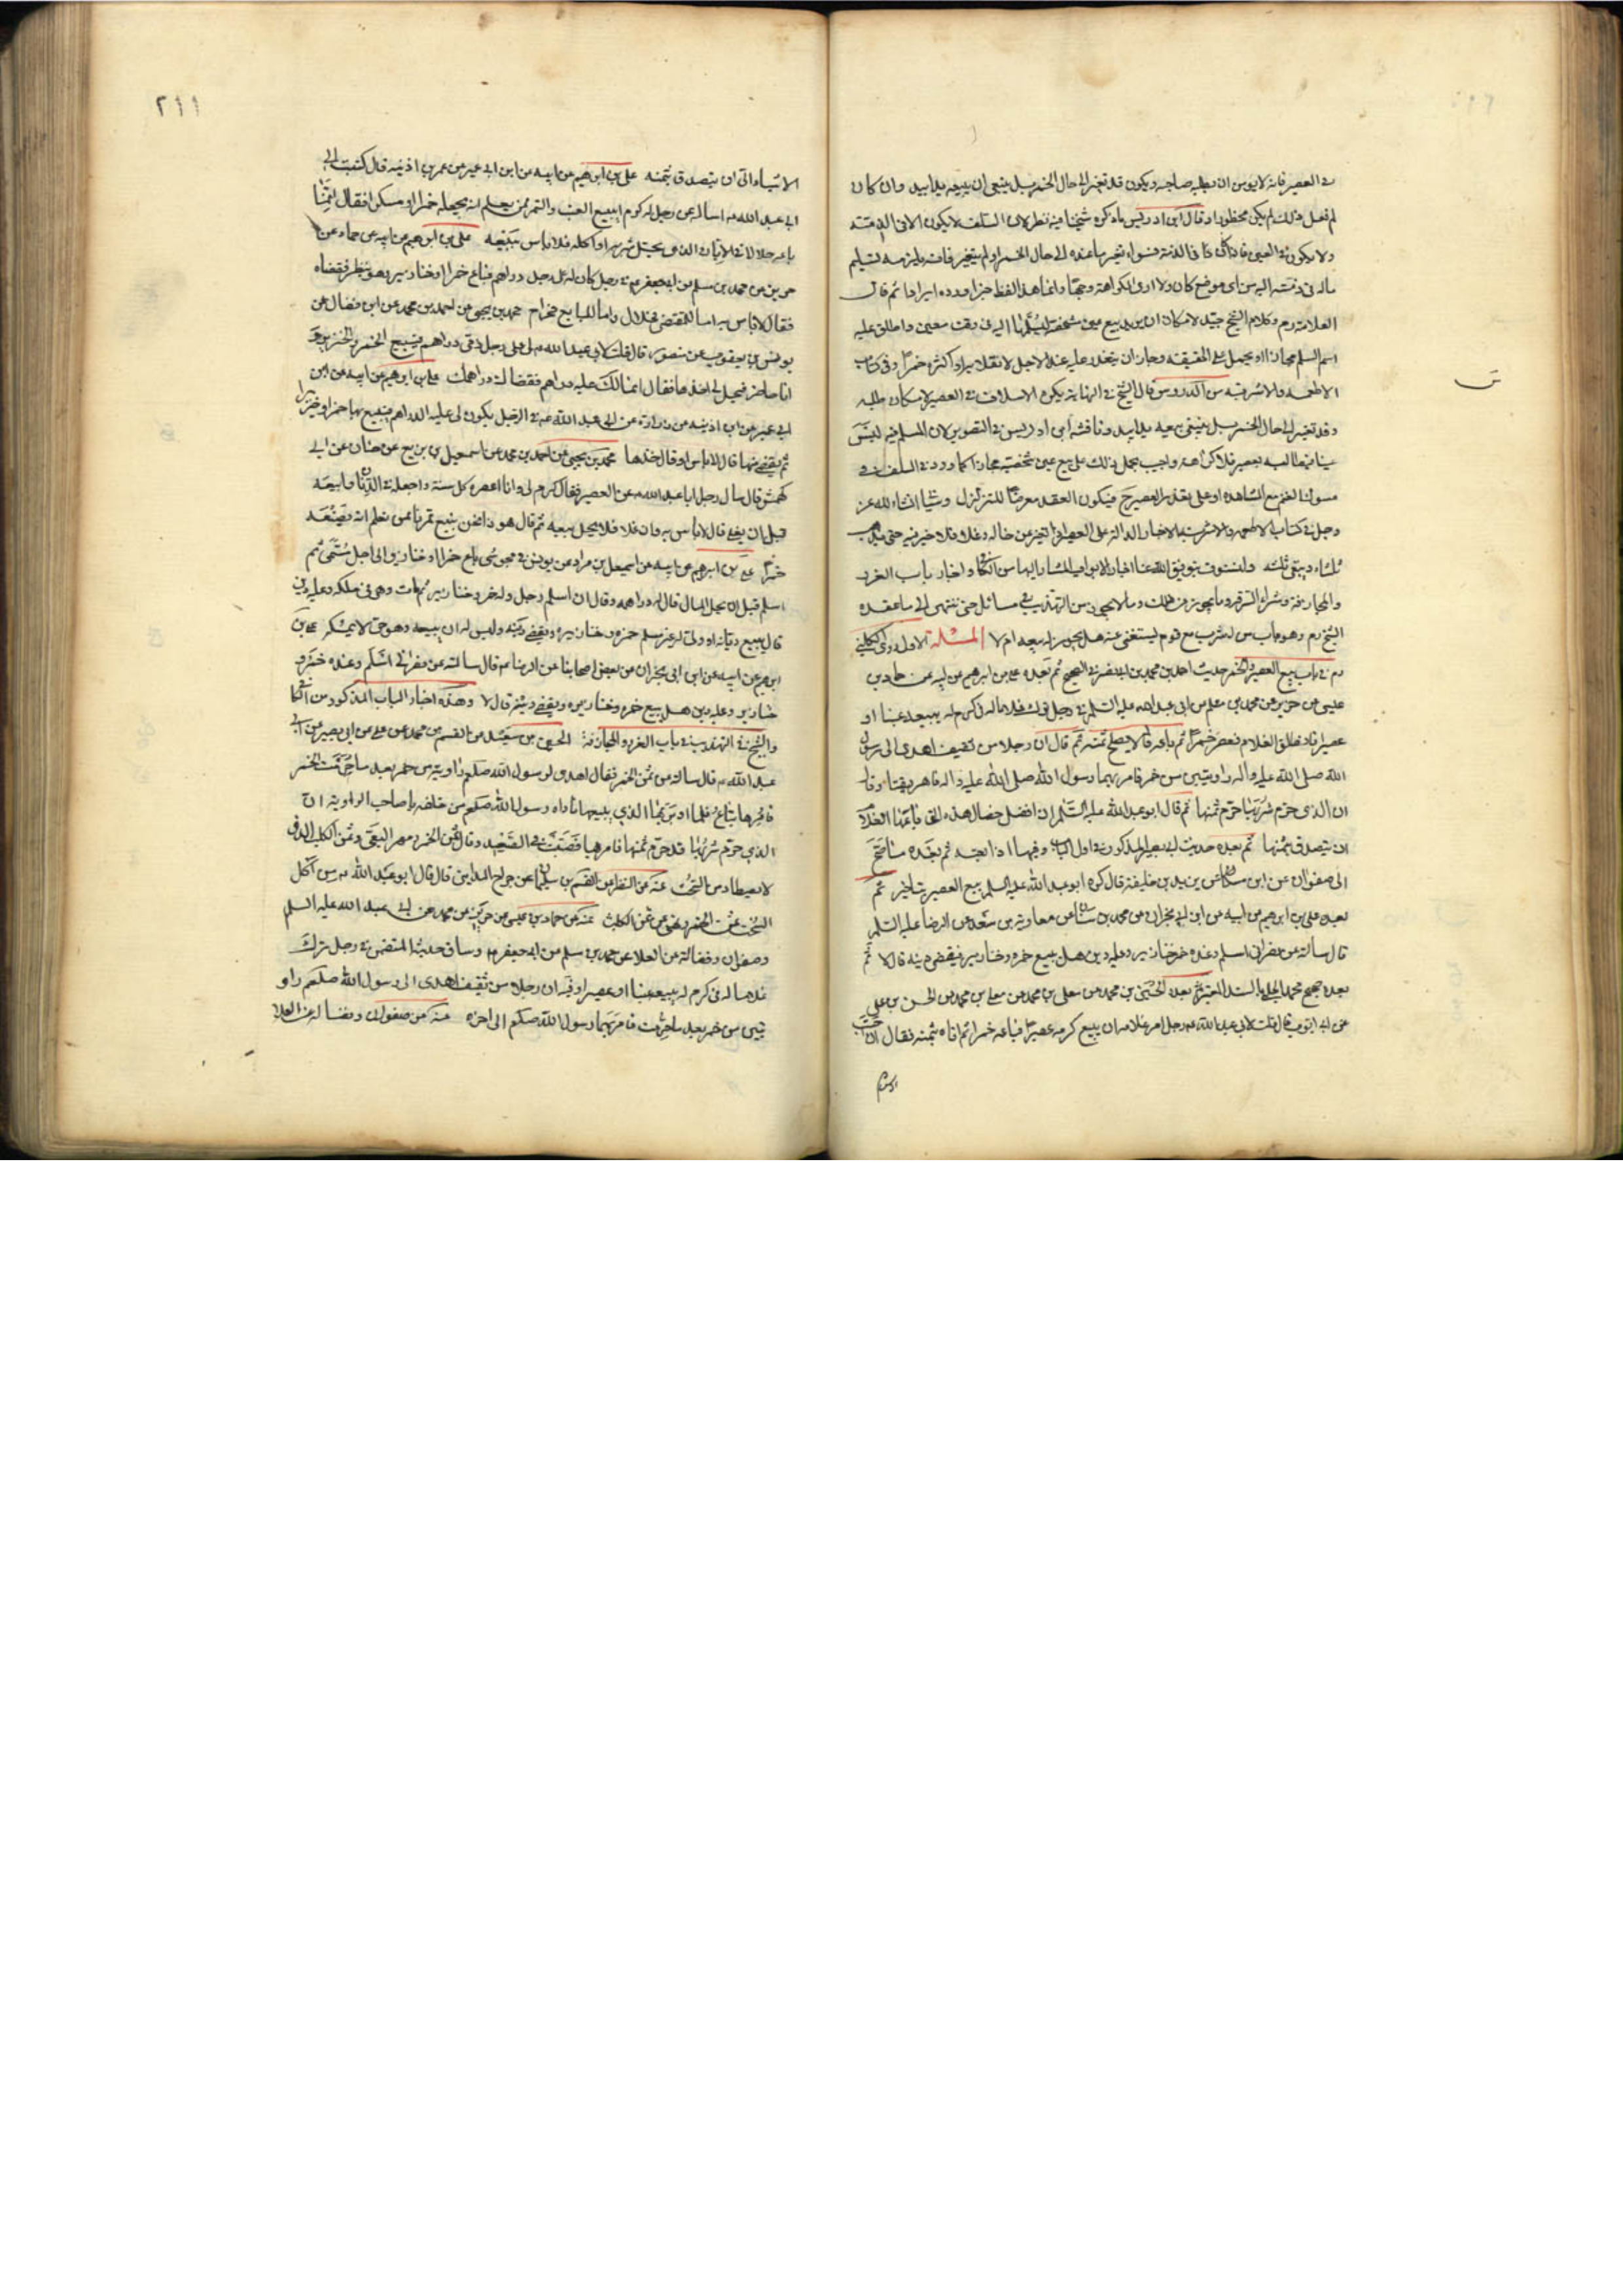 في العصير فانه لا يومن ان يطلبه صاحبه ويكون قد تغير الى حال الخمر بل ينبغي ان يبيعه يدا بيد وان كان
لم فعل ذلك لم يكن محظورا وقال ابن ادريس ما ذكره شيخنا فيه نظر لان السلف لا يكون الا في الذمة
ولا يكون في العين فاذا كان في الذمة فسواء تغير ما عنده الى حال الخمر او لم يتغير فانه يلزمه تسليم
ماله في ذمته اليه من اي موضع كان ولا ارى للكراهة وجها وانما هذا لفظ خبر اورده ايرادا ثم قال
العلامة رم وكلام الشيخ جيد لامكان ان يريد بيع عين مشخصة يسلمها اليه في وقت معين واطلق عليه
اسم السلم مجازا او يحمل على الحقيقة وجاز ان يتعذر عليه عند الاجل لانقلابه او اكثره خمرا وفي كتاب
الاطعمة والاشربة من الدروس قال الشيخ في النهاية يكره الاسلاف في العصير لامكان طلبه
وقد تغير الى حال الخمر بل ينبغي بيعه يدا بيد وناقشه ابن ادريس في التصوير لان المسلم فيه ليس
عينا
وجل في كتاب الاطعمة والاشربة الاخبار الدالة على العصير اذا تغير عن حاله وغلا فلا خير فيه حتى يذهب
ثلثاه ويبقى ثلثه
والمجازفة وشراء السرقة وما يجوز من ذلك وما لا يجوز من التهذيب في مسائل حتى ننتهي الى ما عقده
الشيخ رم وهو باب من له شرب مع قوم يستغني عنه هل يجوز له بيعه ام لا المسئلة الاولى روى الكليني
رم في باب بيع العصير والخمر حديث احمد بن محمد بن ابي نصر في الصحيح ثم بعده علي بن ابرهيم عن ابيه عن حماد بن
عيسى عن حريز عن محمد بن مسلم عن ابي عبد الله عليه السلم في رجل ترك غلاما له في كرم له يبيعه عنبا او
عصيرا فانطلق الغلام فعصر خمرا ثم باعه قال لا يصلح ثمنه ثم قال ان رجلا من ثقيف اهدى الى رسول
الله صلى الله عليه واله راويتين من خمر فامر بهما رسول الله صلى الله عليه واله فاهريقتا وقال
ان الذي حرم شربها حرم ثمنها ثم قال ابو عبد الله عليه السلم ان افضل خصال هذه التي باعها الغلام
ان يتصدق بثمنها ثم بعده حديث ابي بصير المذكور في اول الباب
الى صفوان عن ابن مسكان عن يزيد بن خليفة قال كره ابو عبد الله عليه السلم بيع العصير بتاخير ثم
بعده علي بن ابرهيم عن ابيه عن ابن ابي نجران عن محمد بن سنان عن معاوية بن سعد عن الرضا عليه السلم
قال سالته عن نصراني اسلم وعنده خمر وخنازير وعليه دين هل يبيع خمره وخنازيره فيقضي دينه قال لا ثم
عن ابي ايوب قال قلت لابي عبد الله ع رجل امر غلامه ان يبيع كرمه عصيرا فباعه خمرا ثم اتاه بثمنه فقال ان احب
الاشياء
٢١١
الاشياء الي ان يتصدق بثمنه علي بن ابرهيم عن ابيه عن ابن ابي عمير عن عمر بن اذينه قال كتبت الى
ابي عبد الله ع اساله عن رجل له كرم ايبيع العنب والتمر ممن يعلم انه يجعله خمرا او مسكرا فقال انما
باعه حلالا في الابان الذي يحل شربه او اكله فلا باس ببيعه علي بن ابرهيم عن ابيه عن حماد عن
حريز عن محمد بن مسلم عن ابي جعفر ع في رجل كان له على رجل دراهم فباع خمرا او خنازير وهو ينظر فقضاه
فقال لا باس به اما للمقتضي فحلال واما للبايع فحرام محمد بن يحيى عن احمد بن محمد عن ابن فضال عن
يونس بن يعقوب عن منصور قال قلت لابي عبد الله ع لي على رجل ذمي دراهم فيبيع الخمر والخنزير
وانا حاضر فيحل لي اخذها فقال انما لك عليه دراهم فقضاك دراهمك علي بن ابرهيم عن ابيه عن ابن
ابي عمير عن ابن اذينه عن زرارة عن ابي عبد الله ع في الرجل يكون لي عليه الدراهم فيبيع بها خمرا وخنزيرا
ثم يقضي منها قال لا باس او قال خذها محمد بن يحيى عن احمد بن محمد عن اسمعيل بن بزيع عن حنان عن ابي
كهمش قال سال رجل ابا عبد الله ع عن العصير فقال لي كرم وانا اعصره كل سنة واجعله في الدنان وابيعه
قبل ان يغلي قال لا باس به وان غلا فلا يحل بيعه ثم قال هو ذا نحن نبيع تمرنا ممن نعلم انه يصنعه
خمرا علي بن ابرهيم عن ابيه عن اسمعيل بن مرار عن يونس في مجوسي باع خمرا او خنازير الى اجل مسمى ثم
اسلم قبل ان يحل المال قال له دراهمه وقال ان اسلم رجل وله خمر وخنازير ثم مات وهي في ملكه وعليه دين
قال يبيع ديانه او ولي له غير مسلم خمره وخنازيره ويقضي دينه وليس له ان يبيعه وهو حي ولا يمسكه علي بن
ابرهيم عن ابيه عن ابن ابي نجران عن بعض اصحابنا عن الرضا ع قال سالته عن نصراني اسلم وعنده خمر و
خنازير وعليه دين هل يبيع خمره وخنازيره ويقضي دينه قال لا وهذه اخبار الباب المذكور من الكافي
والشيخ في التهذيب في باب الغرر والمجازفة الحسين بن سعيد عن القسم بن محمد عن علي عن ابي بصير عن ابي
عبد الله ع قال سالته عن ثمن الخمر فقال اهدي لرسول الله صلعم راوية من خمر بعد ما حرمت الخمر
فامر بها تباع فلما ادبر بها الذي يبيعها ناداه رسول الله صلعم من خلفه يا صاحب الراوية ان
الذي حرم شربها قد حرم ثمنها فامر بها فصبت في الصعيد وقال ثمن الخمر ومهر البغي وثمن الكلب الذي
لا يصطاد من السحت عنه عن النضر عن القسم بن سليمان عن جراح المدايني قال قال ابو عبد الله ع من اكل
السحت ثمن الخمر ونهى عن ثمن الكلب عنه عن حماد بن عيسى عن حريز عن محمد عن ابي عبد الله عليه السلم
وصفوان وفضالة عن العلا عن محمد بن مسلم عن ابي جعفر ع وساق حديثه المتضمن في رجل ترك
غلاما له في كرم له يبيعه عنبا او عصيرا وفيه ان رجلا من ثقيف اهدى الى رسول الله صلعم راو
يتين من خمر بعد ما حرمت فامر بهما رسول الله صلعم الى اخره عنه عن صفوان وفضالة عن العلا